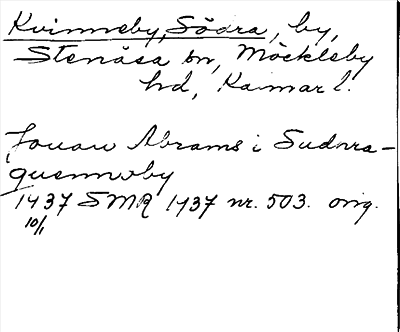 Kvinneby, Södra, by,
Stenåsa sn, Möckleby
hd, Kalmar l.
Jouan Abrams i Sudhra-
quenneby
1437 SMR 1437 nr. 503. orig.
10/1